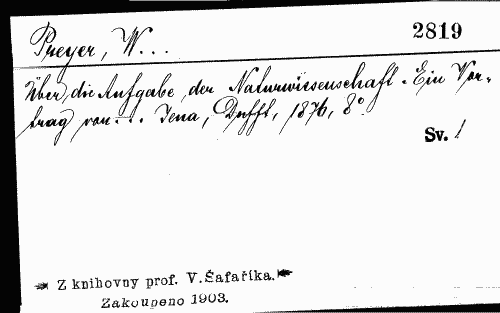 Preyer, W...
2819
Über die Aufgabe der Naturwissenschaft. Ein Vor-
trag von... Jena, Dufft, 1876, 8°.
Sv. 1
Z knihovny prof. V. Šafaříka.
Zakoupeno 1903.